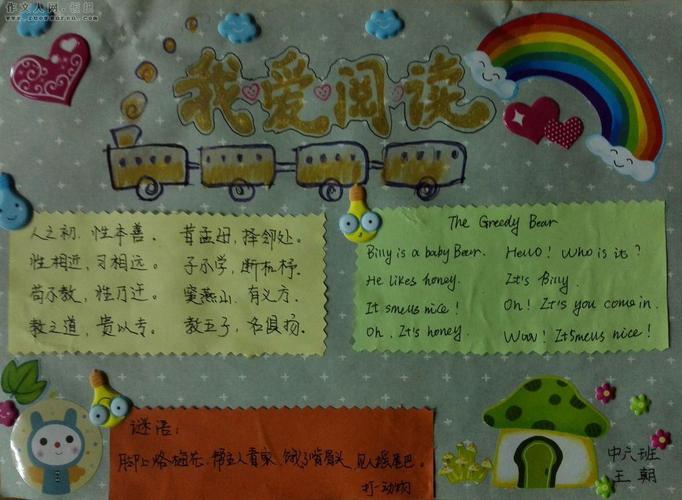 作文人网·板报
www.zuowenren.com
我爱阅读
人之初，性本善。 昔孟母，择邻处。
性相近，习相远。 子不学，断机杼。
苟不教，性乃迁。 窦燕山，有义方。
教之道，贵以专。 教五子，名俱扬。
The Greedy Bear
Billy is a baby Bear.
He likes honey.
It smells nice!
Oh, It's honey.
Hello! Who is it?
It's Billy.
Oh! It's you come in.
Wow! It smells nice!
谜语：
脚上烙梅花，帮主人看家，饿了啃骨头，见人摇尾巴。
打一动物
中六班
王朝